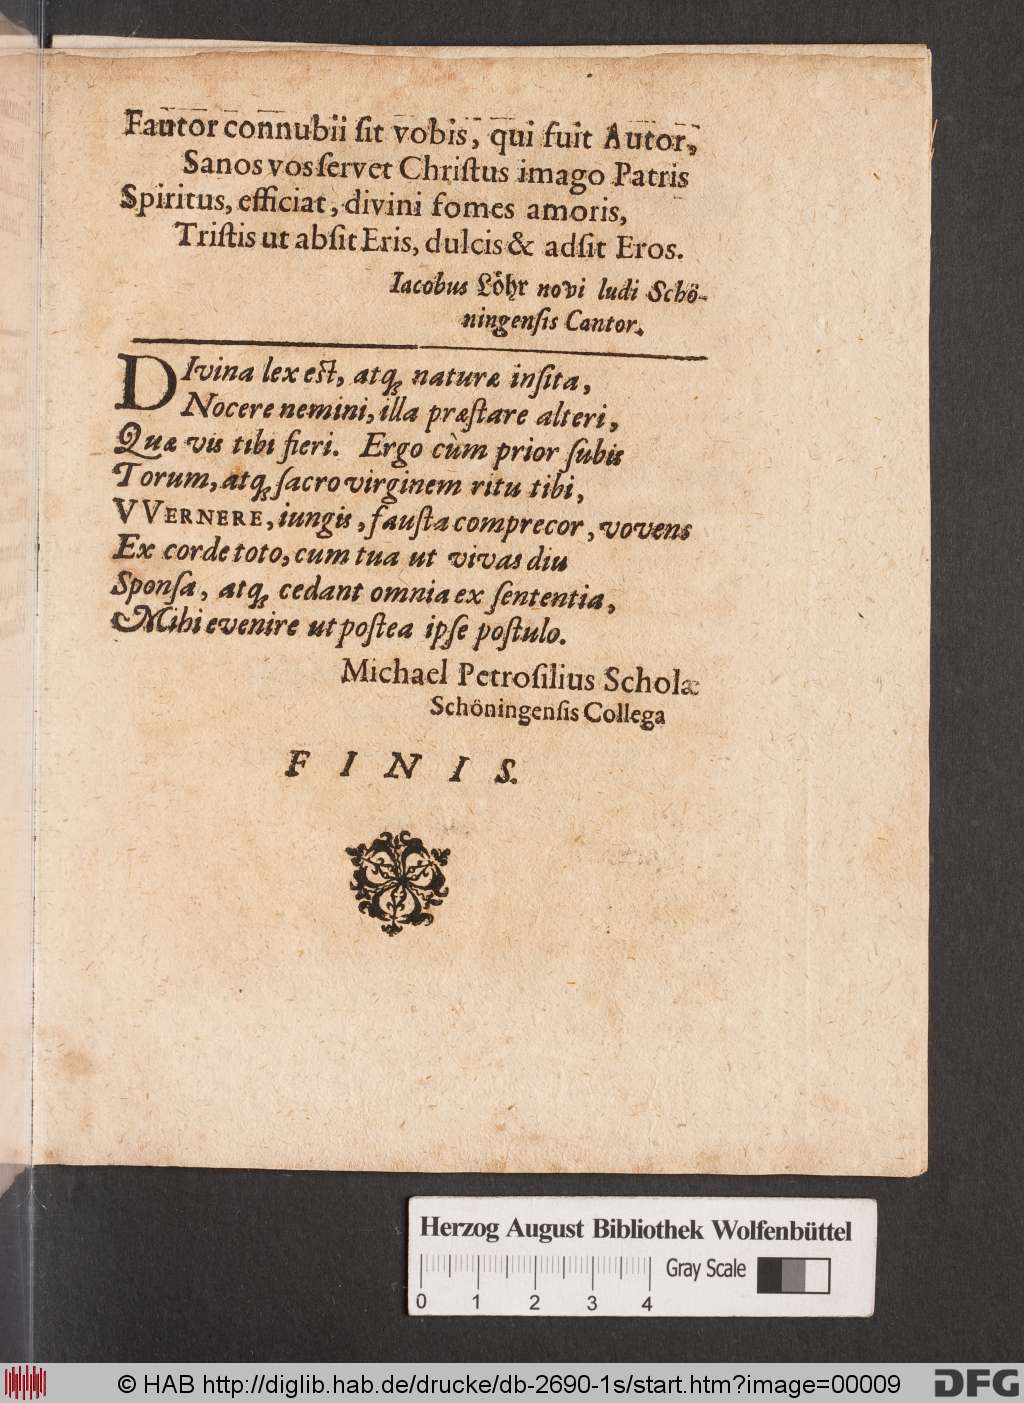 Fautor connubii ſit vobis, qui fuit Autor,
Sanos vos ſervet Chriſtus imago Patris
Spiritus, efficiat, divini fomes amoris,
Triſtis ut abſit Eris, dulcis & adſit Eros.
Iacobus Löhr novi ludi Schö-
ningenſis Cantor.
DIvina lex eſt, atq; naturæ inſita,
Nocere nemini, illa præſtare alteri,
Quæ vis tibi fieri. Ergo cùm prior ſubis
Torum, atq; ſacro virginem ritu tibi,
VVERNERE, iungis, fauſta comprecor, vovens
Ex corde toto, cum tua ut vivas diu
Sponſa, atq; cedant omnia ex ſententia,
Mihi evenire ut poſtea ipſe poſtulo.
Michael Petroſilius Scholæ
Schöningenſis Collega
FINIS.
Herzog August Bibliothek Wolfenbüttel
Gray Scale
0 1 2 3 4
© HAB http://diglib.hab.de/drucke/db-2690-1s/start.htm?image=00009
DFG